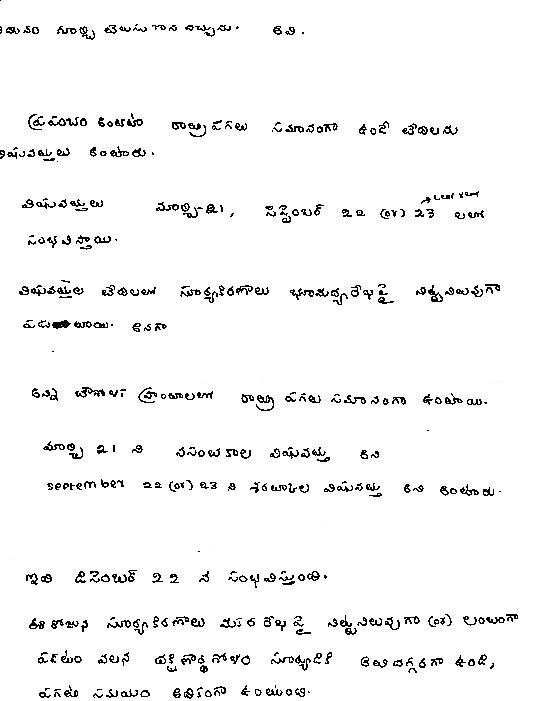 మార్చి తెలుసుకొని వచ్చును. అవి.
ప్రపంచం అంతటా రాత్రి పగలు సమానంగా ఉండే తేదీలను
విషువత్తులు అంటారు.
విషువత్తులు మార్చి-21, సెప్టెంబర్ 22 (or) 23 లలో
సంభవిస్తాయి.
విషువత్తుల తేదీలలో సూర్యకిరణాలు భూమధ్య రేఖపై నిట్టనిలువుగా
పడుతాయి. అనగా
అన్ని భౌగోళిక ప్రాంతాలలో రాత్రి పగలు సమానంగా ఉంటాయి.
మార్చి 21 ని వసంతకాల విషువత్తు అని
september 22 (or) 23 ని శరత్కాల విషువత్తు అని అంటారు.
ఇది డిసెంబర్ 22 న సంభవిస్తుంది.
ఈ రోజున సూర్యకిరణాలు మకర రేఖపై నిట్టనిలువుగా (or) లంబంగా
పడటం వలన దక్షిణార్థగోళం సూర్యుడికి అతి దగ్గరగా ఉండి,
పగటి సమయం అధికంగా ఉంటుంది.